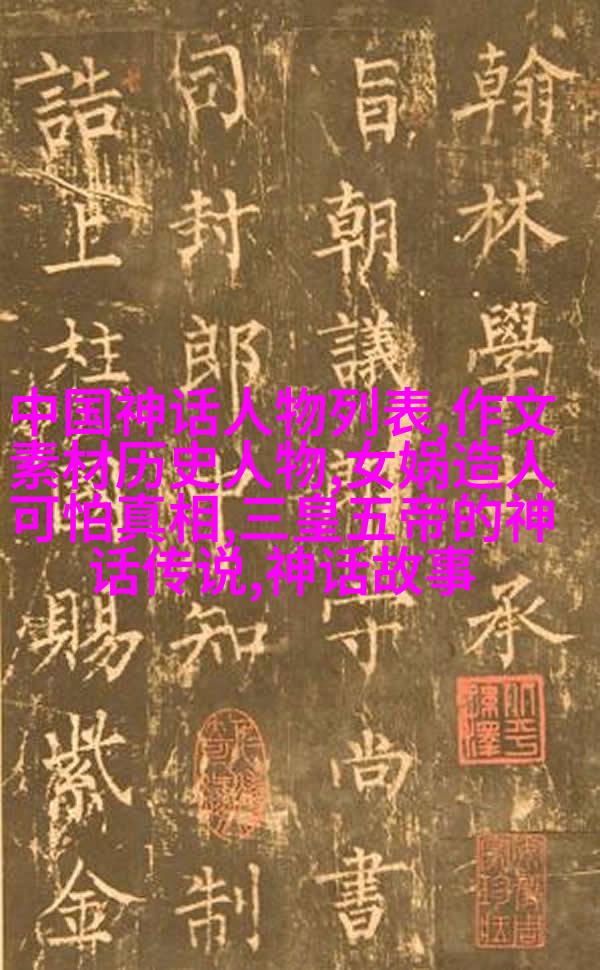 翰林學承
旨朝議守尚書
司封郎中知制
誥上柱賜紫金
中国神话人物列表,作文
素材历史人物,女娲造人
可怕真相,三皇五帝的神
话传说,神话故事